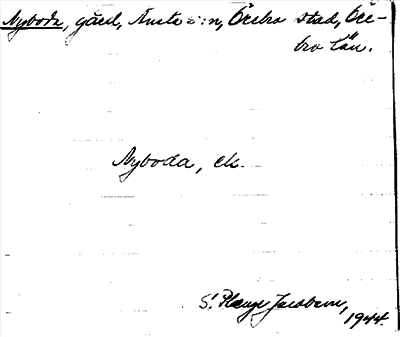 Nyboda, gård, Örebro stad, Öre-
bro län.
Nyboda, ek.
S. Plenge Jacobsen,
1944.